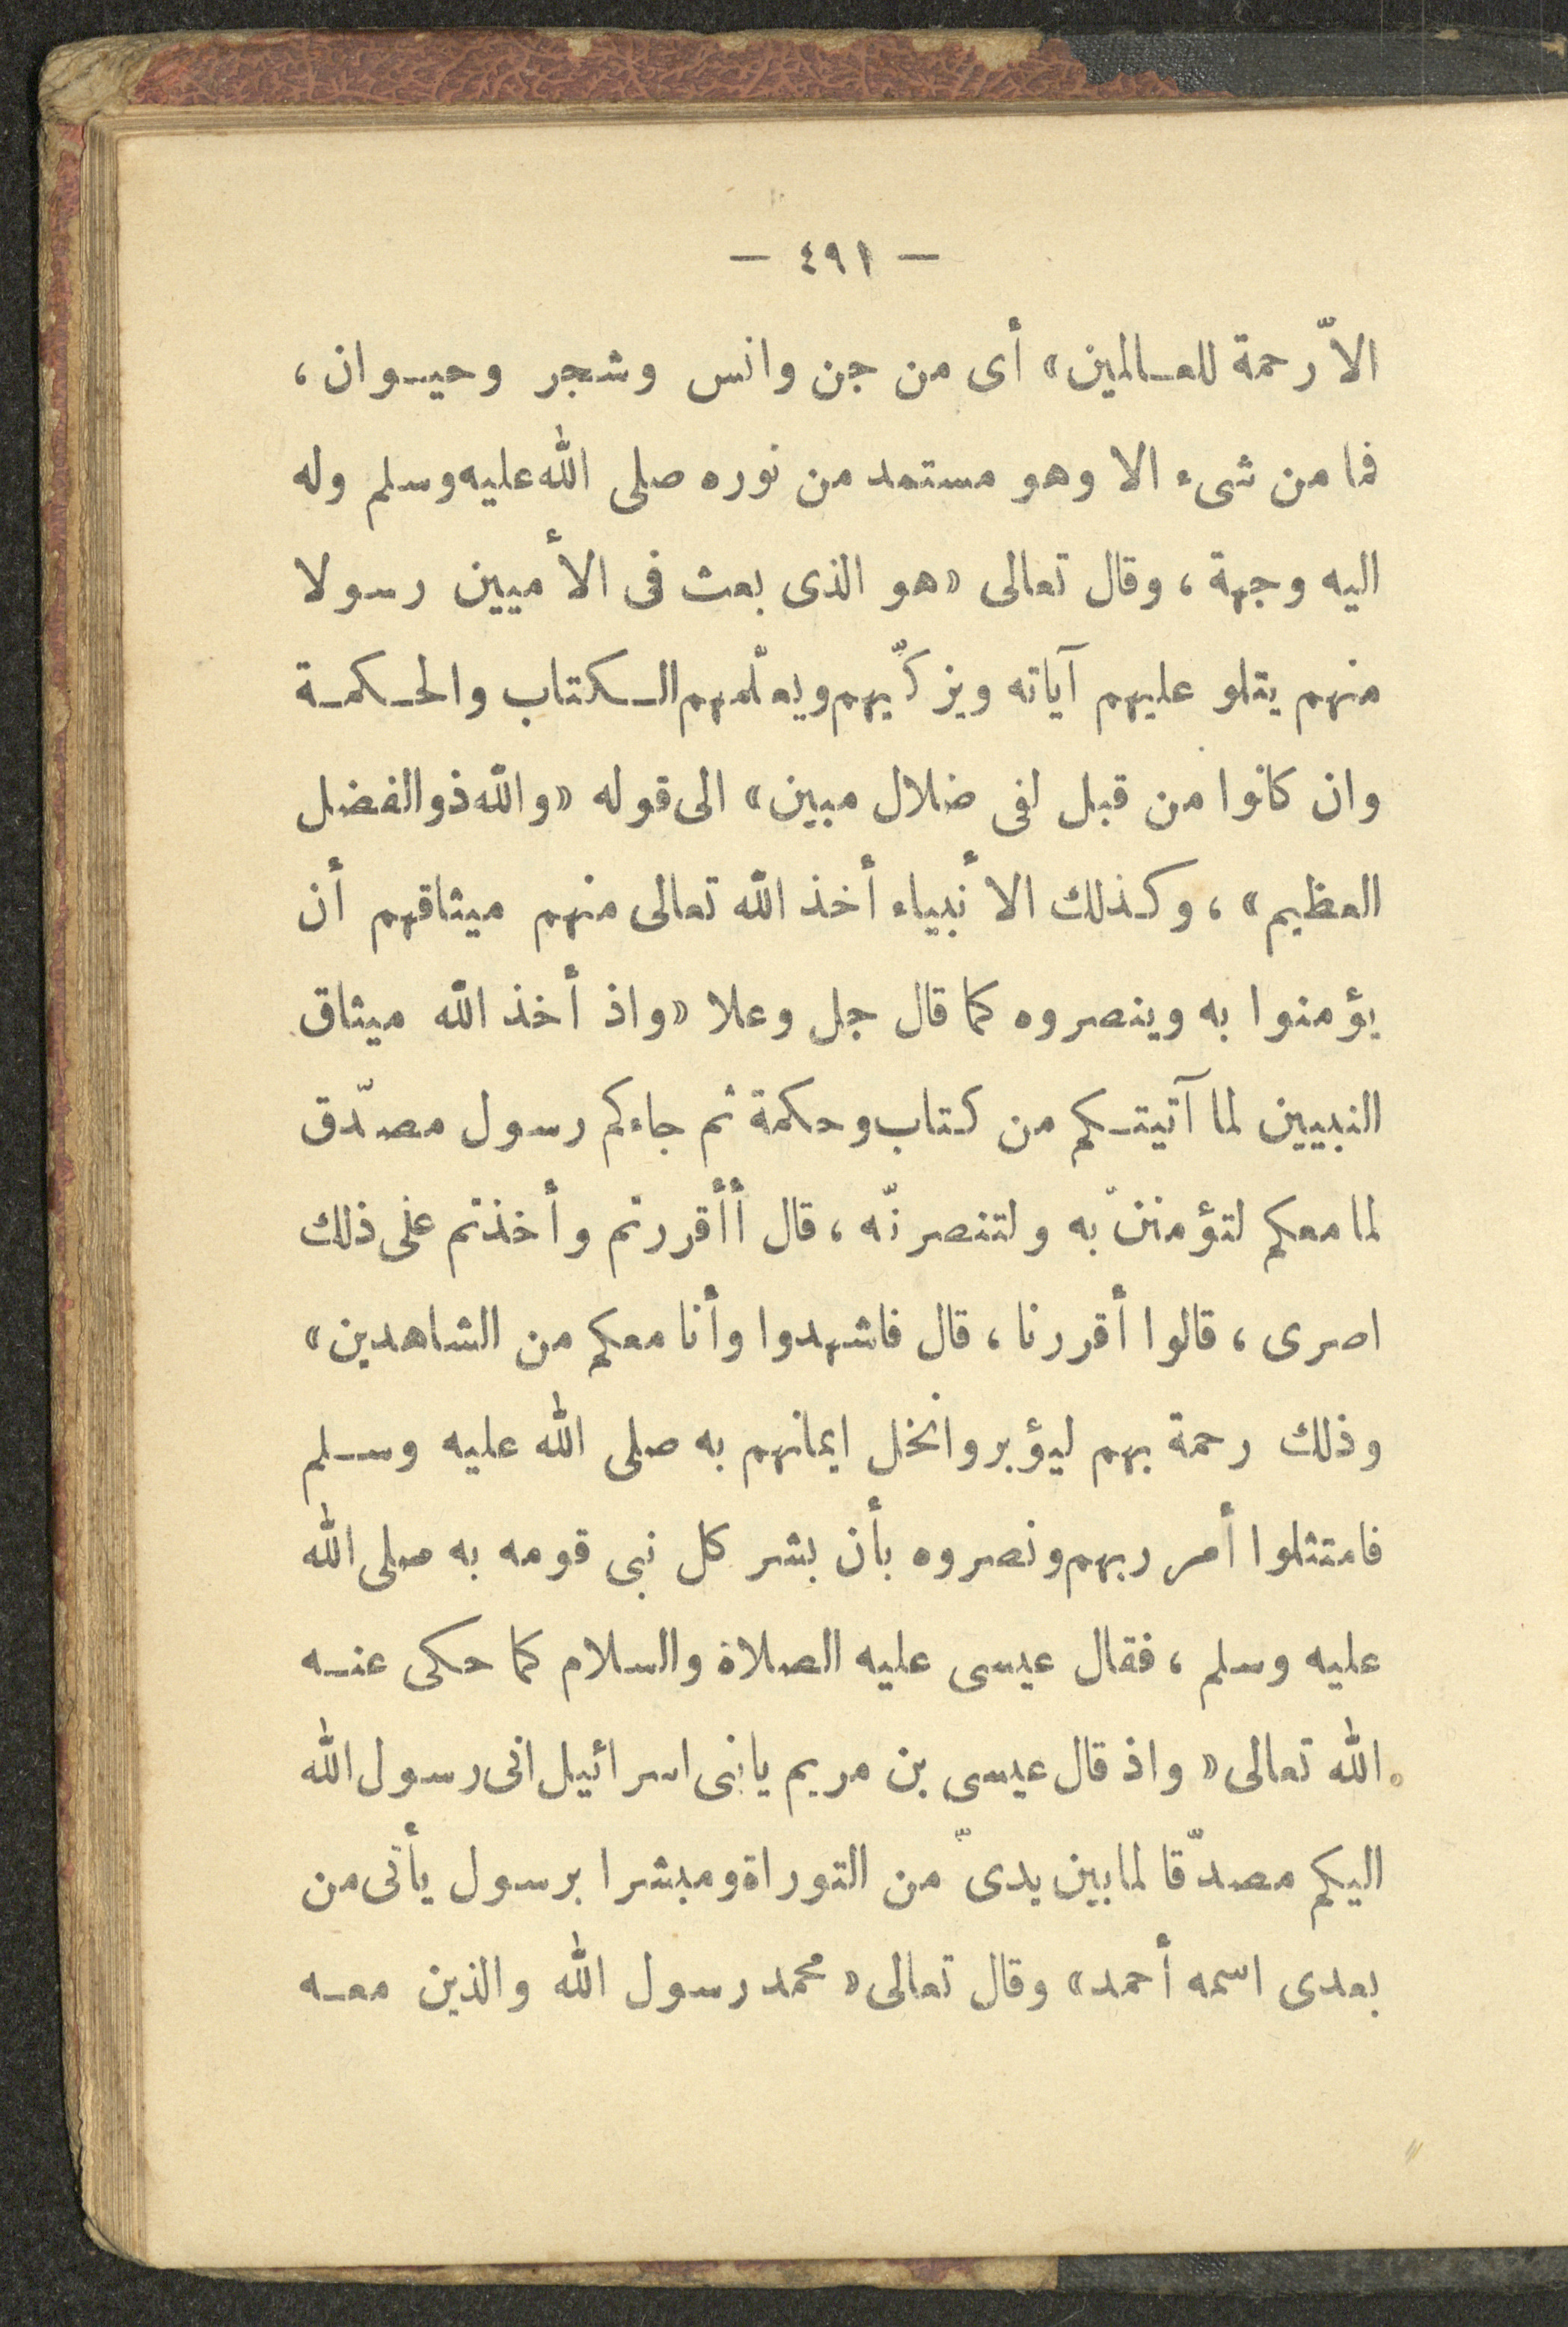 — ٤٩١ —
الاّ رحمة للعـالمين» أى من جن وانس وشجر وحيـوان ،
فما من شىء الا وهو مستمد من نوره صلى الله عليه وسلم وله
اليه وجهة ، وقال تعالى «هو الذى بعث فى الأميين رسولا
منهم يتلو عليهم آياته ويزكّيهم ويعلّمهم الـكتاب والحـكمـة
وان كانوا من قبل لفى ضلال مبين» الى قوله «والله ذو الفضل
العظيم» ، وكذلك الأنبياء أخذ الله تعالى منهم ميثاقهم أن
يؤمنوا به وينصروه كما قال جل وعلا «واذ أخذ الله ميثاق
النبيين لما آتيتـكم من كتاب وحكمة ثم جاءكم رسول مصدّق
لما معكم لتؤمننّ به ولتنصرنّه ، قال أأقررتم وأخذتم على ذلك
اصرى ، قالوا أقررنا ، قال فاشهدوا وأنا معكم من الشاهدين»
وذلك رحمة بهم ليؤبروا نخل ايمانهم به صلى الله عليه وسـلم
فامتثلوا أمر ربهم ونصروه بأن بشر كل نبى قومه به صلى الله
عليه وسلم ، فقال عيسى عليه الصلاة والسلام كما حكى عنـه
الله تعالى « واذ قال عيسى بن مريم يا بنى اسرائيل انى رسول الله
اليكم مصدّقا لما بين يدىّ من التوراة ومبشرا برسول يأتى من
بعدى اسمه أحمد» وقال تعالى « محمد رسول الله والذين معـه